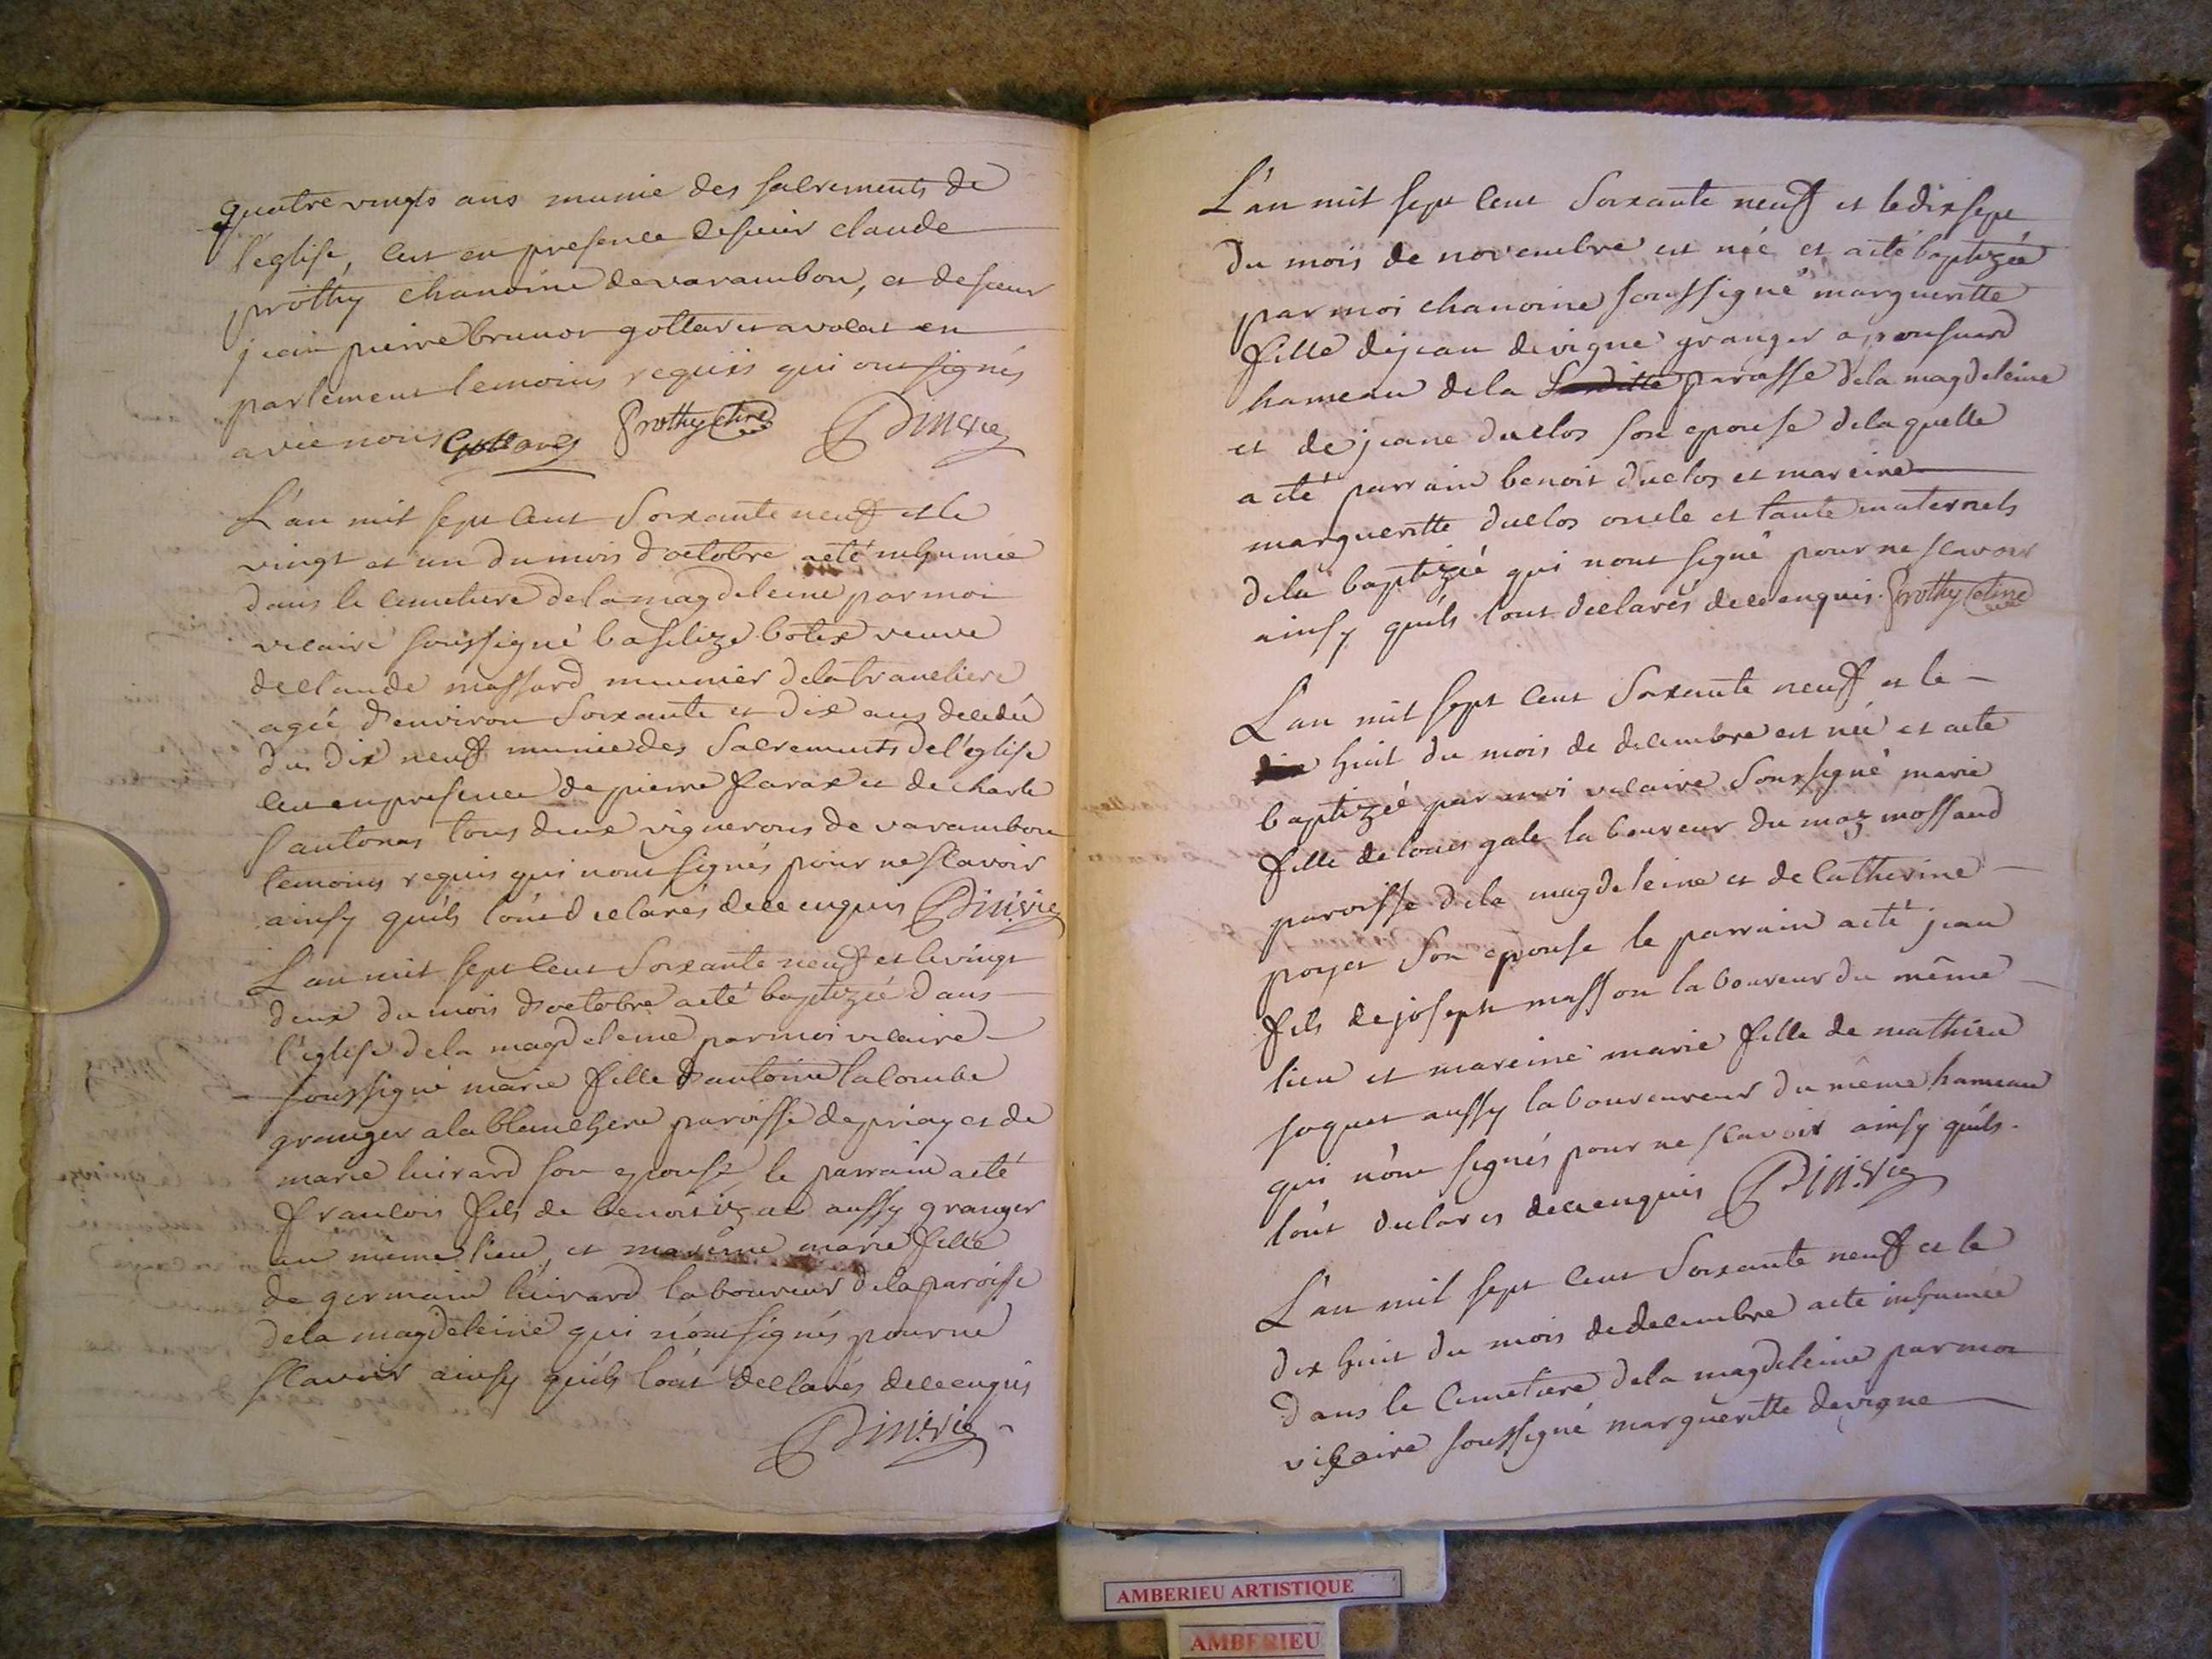 quatre vingts ans munie des sacrements de
l'eglise, cest en presence de sieur claude
prothy chanoine de varambon, et de sieur
jean pierre brunot gottaret avocat en
parlement temoins requis qui ont signés
avec nous Gottaret Prothy chne
L'an mil sept cent soixante neuff et le
vingt et un du mois d'octobre a eté inhumée
dans le cimetiere de la magdeleine par moi
vicaire soussigné basilize botex veuve
de claude massard munier de la
agée d'environ soixante et dix ans decedée
du dix neuff munie des sacrements de l'eglise
cest en presence de pierre farax et de charle
santonas tous deux vignerons de varambon
temoins requis qui n'ont signés pour ne scavoir
ainsy quils l'ont declarés de ce enquis
L'an mil sept cent soixante neuff et le vingt
deux du mois d'octobre a eté baptizée dans
l'eglise de la magdeleine par moi vicaire
soussigné marie fille d'antoine lacombe
granger a la blanchere paroisse de priay et de
marie luirard son epouse, le parrain a eté
francois fils de benoit izac aussy granger
au même lieu, et mareine marie fille
de germain luirard laboureur de la paroisse
de la magdeleine qui n'ont signés pour ne
scavoir ainsy quils l'ont declarés de ce enquis
L'an mil sept cent soixante neuff et le dix sept
du mois de novembre est née et a eté baptizée
par moi chanoine soussigné margueritte
fille de jean devigne granger a ponsuard
hameau de la paroisse de la magdeleine
et de jeane duclos son epouse de laquelle
a eté parrain benoit duclos et mareine
margueritte duclos oncle et tante maternels
de la baptizée qui n'ont signé pour ne scavoir
ainsy quils l'ont declarés de ce enquis. Prothy chne
L'an mil sept cent soixante neuff et le
huit du mois de decembre est née et a eté
baptizée par moi vicaire soussigné marie
fille de louis gale laboureur du maz mossand
paroisse de la magdeleine et de catherine
poyet son epouse le parrain a eté jean
fils de joseph masson laboureur du même
lieu et mareine marie fille de mathieu
soquet aussy laboureureur du même hameau
qui n'ont signés pour ne scavoir ainsy quils
l'ont declarés de ce enquis
L'an mil sept cent soixante neuff et le
dix huit du mois de decembre a eté inhumée
dans le cimetiere de la magdeleine par moi
vicaire soussigné margueritte devigne
AMBERIEU ARTISTIQUE
AMBERIEU